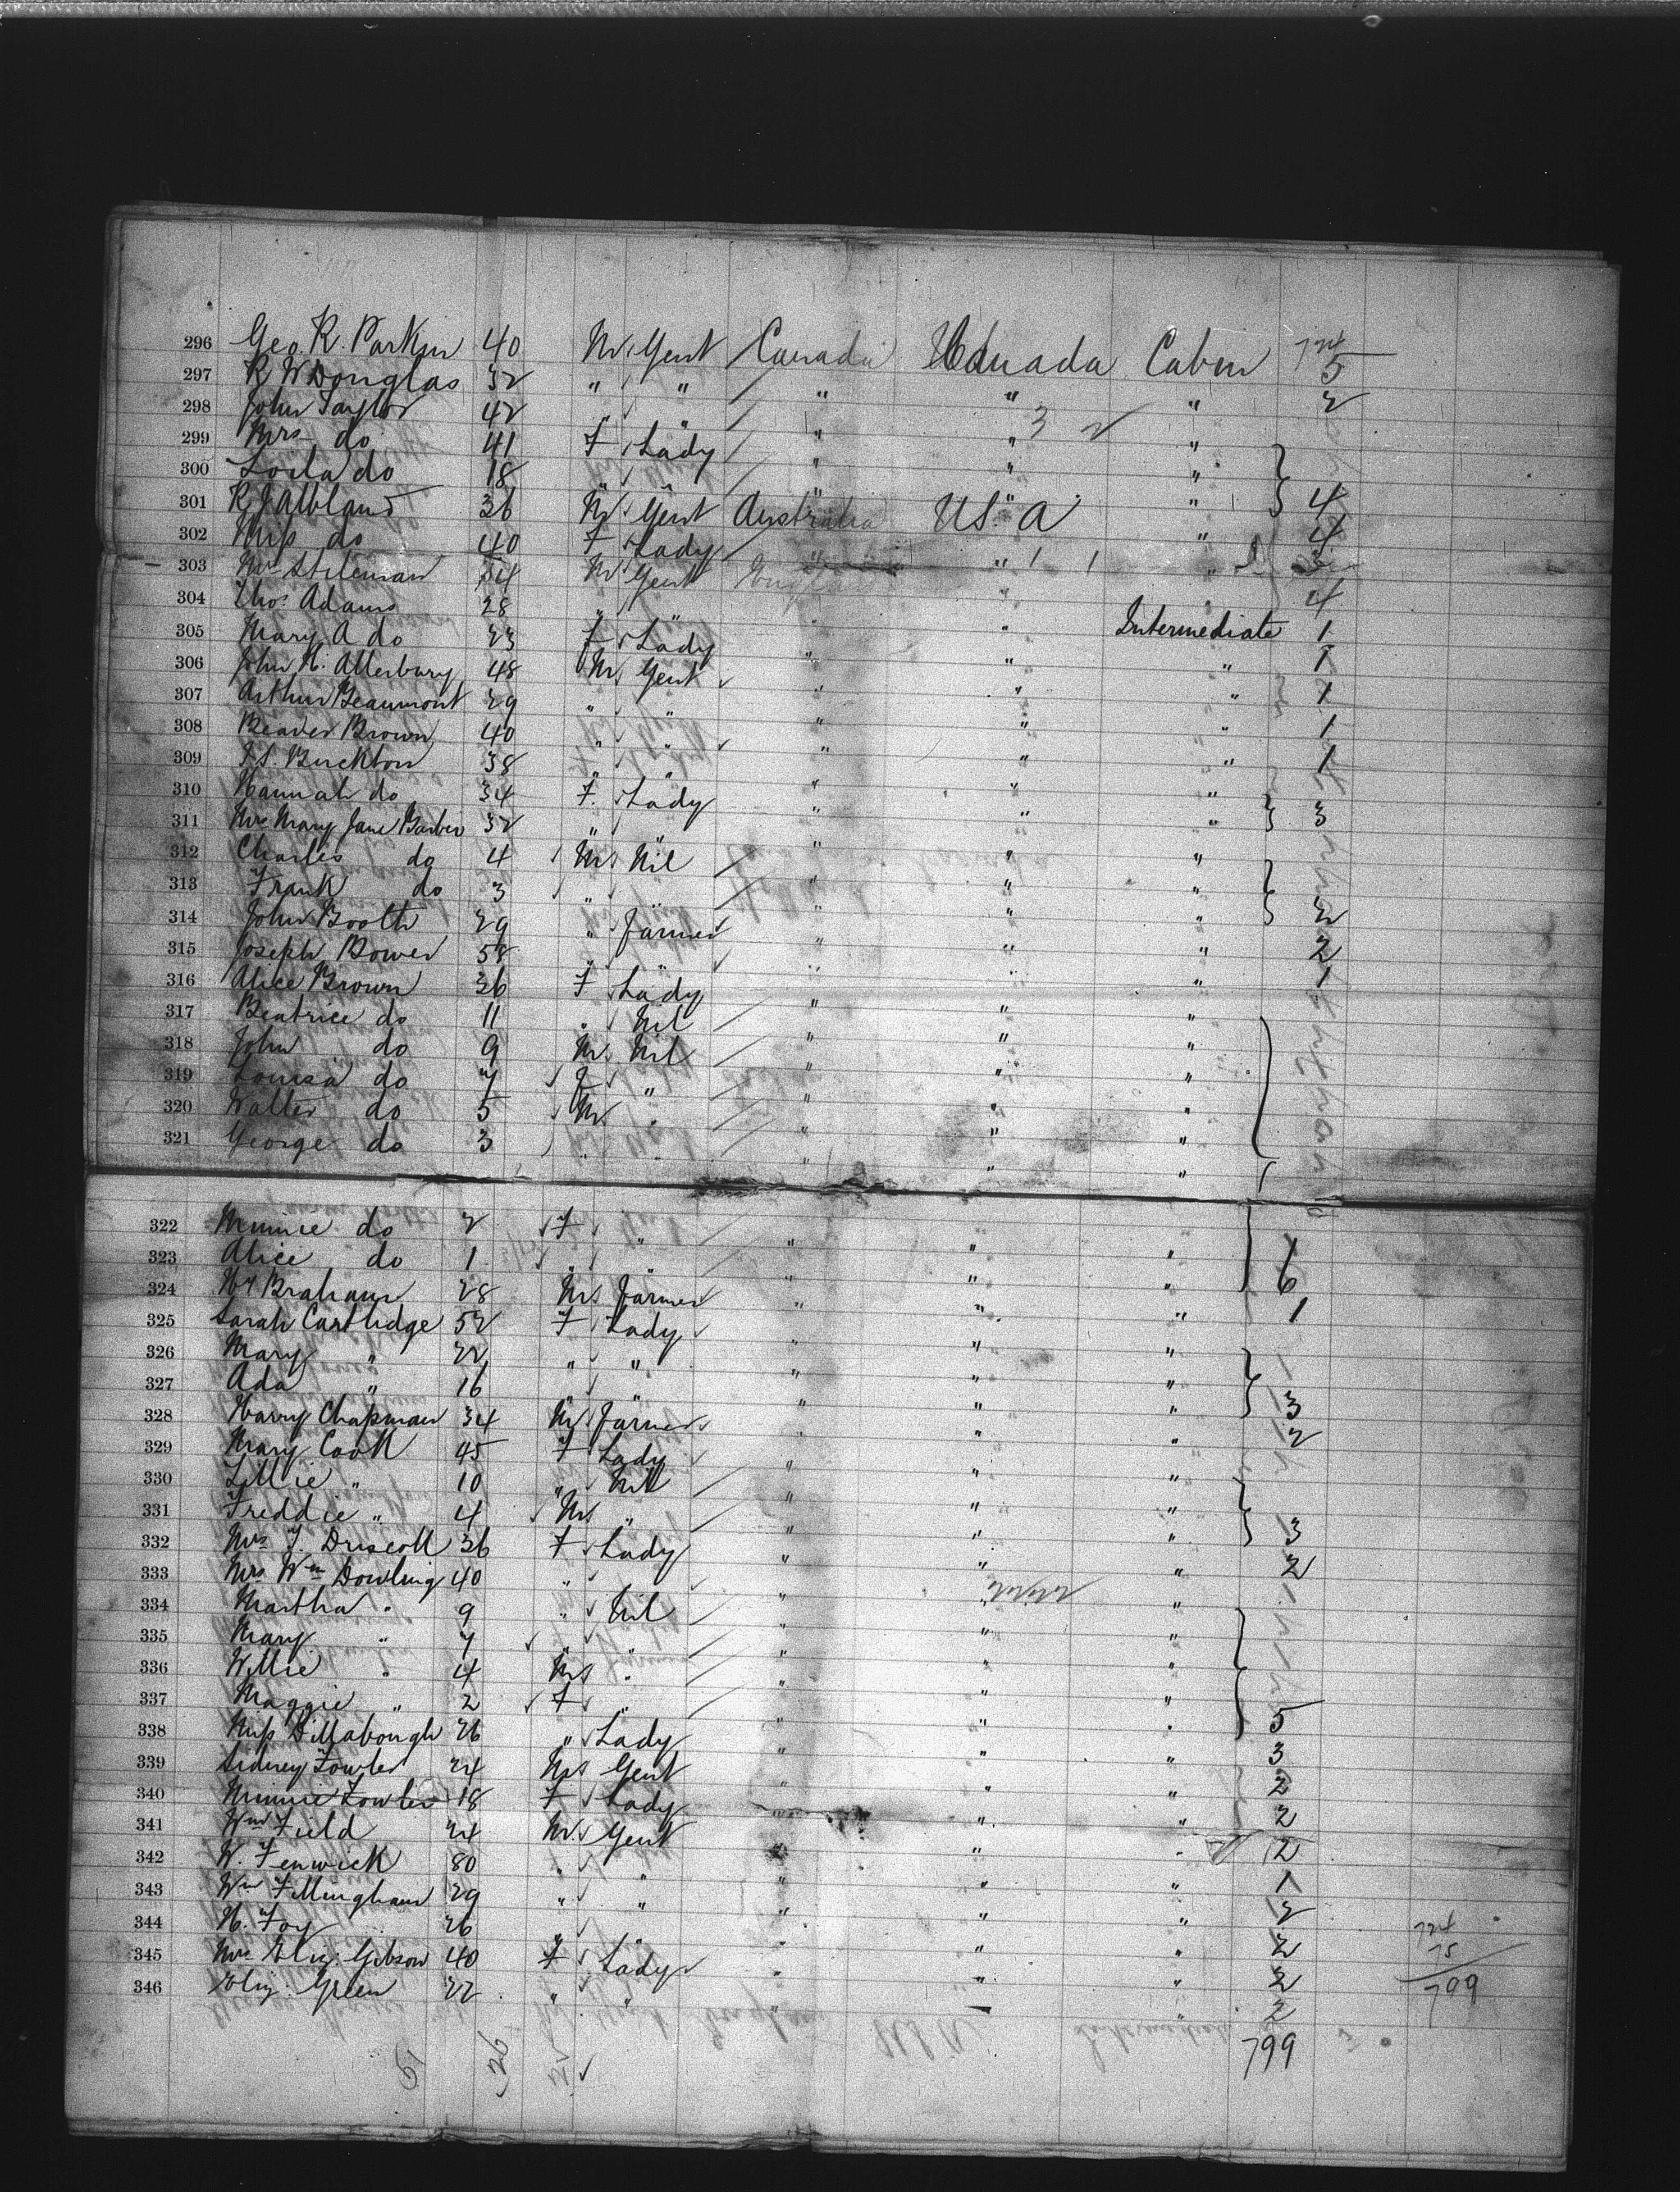 724
296 Geo. R. Parkin 40 M Gent Canada Canada Cabin 5
297 R W Douglas 32 " " " " " 2
298 John Taylor 42 " " " 3 2
299 Mrs do 41 F Lady " " "
300 do 18 " " " 4
301 R J 36 M Gent Australia U.S.A " 4
302 Miss do 40 F Lady " " " 3
303 Mr Stileman 54 M Gent England " " 4
304 Thos Adams 28 " " " Intermediate 1
305 Mary A do 23 F Lady " " " 1
306 John H. Atterbury 48 M Gent " " " 1
307 Arthur Beaumont 29 " " " " " 1
308 Beaver Brown 40 " " " " " 1
309 Buckton 38 " " " " "
310 Hannah do 34 F Lady " " " 3
311 Mrs Mary Jane Barber 32 " " " " "
312 Charles do 4 M Nil " " "
313 Frank do 3 " " " " " 2
314 John Booth 29 " Farmer " " " 2
315 Joseph Bower 58 " " " " " 1
316 Alice Brown 36 F Lady " " "
317 Beatrice do 11 " Nil " " "
318 John do 9 M Nil " " "
319 Louisa do 7 F " " " "
320 Walter do 5 M " " " "
321 George do 3 " " " " "
322 Minnie do 2 F " " " "
323 Alice do 1 " " " " " 6
324 Braham 28 M Farmer " " " 1
325 Sarah Cartlidge 52 F Lady " " "
326 Mary " 22 " " " " "
327 Ada " 16 " " " " " 3
328 Harry Chapman 34 M Farmer " " " 2
329 Mary Cook 45 F Lady " " "
330 Lillie " 10 " Nil " " "
331 Freddie " 4 M " " " " 3
332 Mrs J. Driscoll 36 F Lady " " " 2
333 Mrs Wm Dowling 40 " " " " "
334 Martha " 9 " Nil " " "
335 Mary " 7 " " " " "
336 Willie " 4 M " " " "
337 Maggie " 2 F " " " " 5
338 Miss Dillabough 26 " Lady " " " 3
339 Sidney Fowler 24 M Gent " " " 2
340 Minnie Fowler 18 F Lady " " " 2
341 Wm Field 24 M Gent " " " 2
342 W. Fenwick 30 " " " " " 1
343 Wm Fillingham 29 " " " " " 2
344 H. Foy 26 " " " " " 2
345 Mrs Eliz. Gibson 40 F Lady " " " 2
346 Eliz. Green 22 " " " " " 2
724
75
799
799